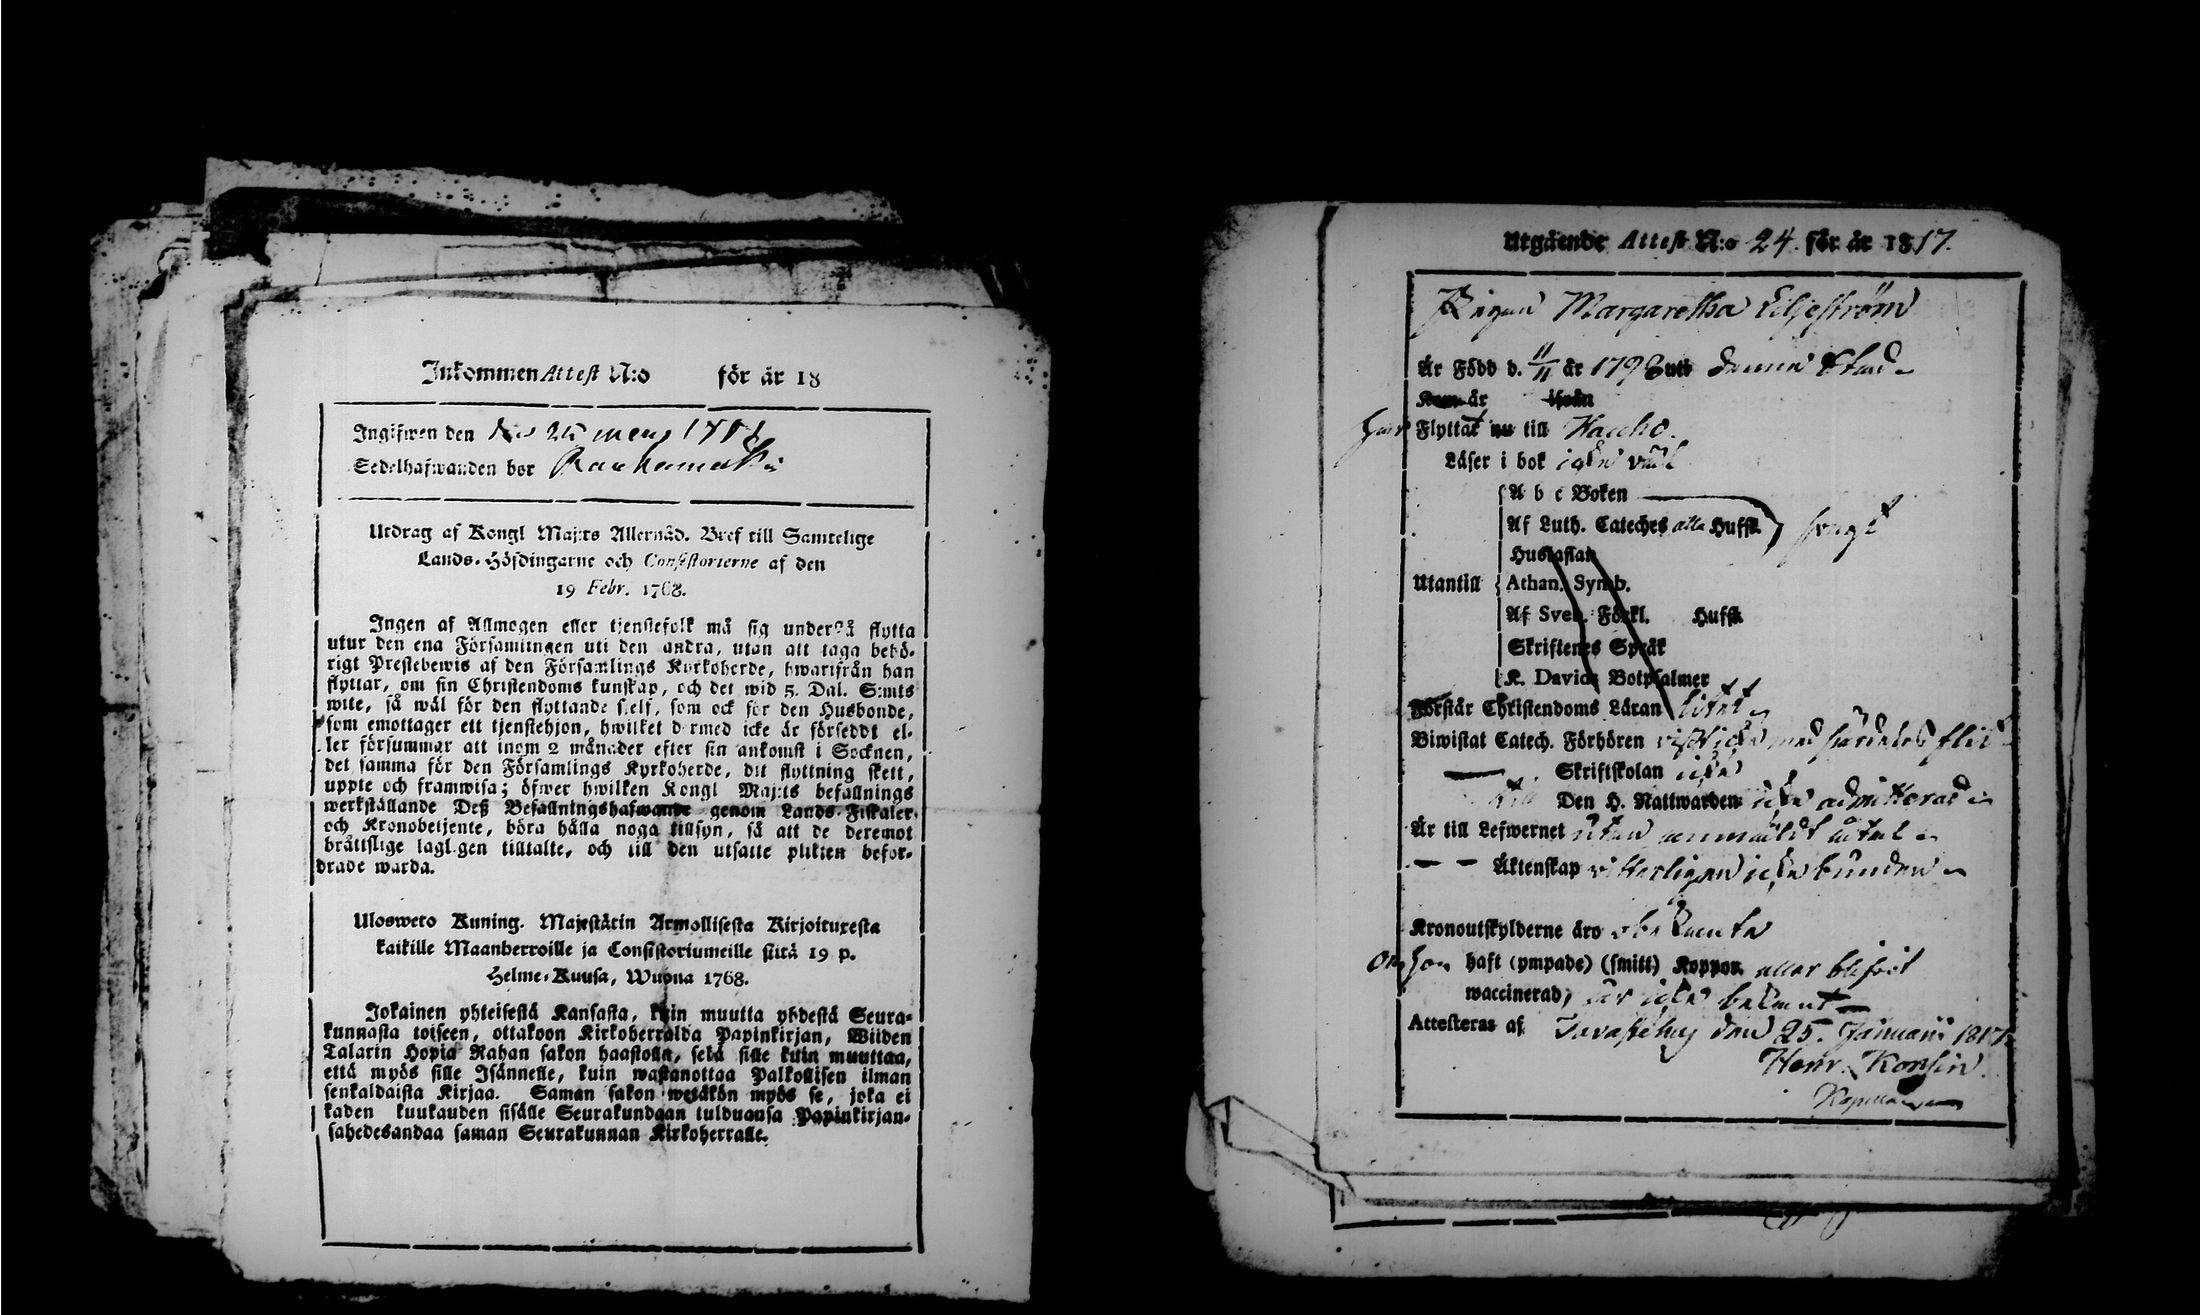 Inkommen Attest N:o för år 18
Ingifwen den 25
Sedelhafwanden bor
Utdrag af Kongl Maj:ts Allernåd. Bref till Samtelige
Lands-Höfdingarne och Consistorierne af den
19 Febr. 1768.
Ingen af Allmogen eller tjenstefolk må sig understå flytta
utur den ena Församlingen uti den andra, utan att taga behö-
rigt Prestebewis af den Församlings Kyrkoherde, hwarifrån han
flyttar, om sin Christendoms kunskap, och det wid 5. Dal. S:mts
wite, så wäl för den flyttande sjelf, som ock för den Husbonde,
som emottager ett tjenstehjon, hwilket dermed icke är förseddt el-
ler försummar att inom 2 månader efter sin ankomst i Socknen,
det samma för den Församlings Kyrkoherde, dit flyttning skett,
uppte och framwisa; öfwer hwilken Kongl Maj:ts befallnings
werkställande Deß Befallningshafwande genom Lands-Fiskaler
och Kronobetjente, böra hålla noga tillsyn, så att de deremot
bråttslige lagligen tilltalte, och till den utsatte plikten befor-
drade warda.
Ulosweto Kuning. Majestätin Armollisesta Kirjoituxesta
kaikille Maanherroille ja Consistoriumeille siitä 19 p.
Helme-Kuusa, Wuona 1768.
Jokainen yhteisestä Kansasta, kuin muutta yhdestä Seura-
kunnasta toiseen, ottakoon Kirkoherralda Papinkirjan, Wiiden
Talarin Hopia Rahan sakon haastolla, sekä sille kuin muuttaa,
että myös sille Isännelle, kuin wastanottaa Palkollisen ilman
senkaldaista Kirjaa. Saman sakon wetäkön myös se, joka ei
kaden kuukauden sisälle Seurakundaan tulduansa Papinkirjan-
sahedesandaa saman Seurakunnan Kirkoherralle.
Utgående Attest N:o 24. för år 1817.
Pigan Margaretha Liljeström
Är Född d. 11/11 år 179 uti denna Stad
Kom år ifrån
Flyttat nu till Hauho.
Läser i bok icke väl
A b c Boken
Af Luth. Cateches alla Hufst. svagt
Hustaflan
Utantill Athan. Symb.
Af Sveb. Förkl. Hufst.
Skriftenes Språk
K. Davids Botpsalmer
Förstår Christendoms Läran litet
Biwistat Catech. Förhören visst icke med särdeles flit
Skriftskolan icke
till Den H. Nattwarden icke admitterad
Är till Lefwernet utan anmäldt åtal
Äktenskap vitterligen icke bunden
Kronoutskylderne äro obekanta
Om hon haft (ympade) (smitt) Koppor eller blifvit
waccinerad, är icke bekant
Attesteras af Tavastehus den 25. Januarii 1817.
Henr. Konsin.
Kapellan